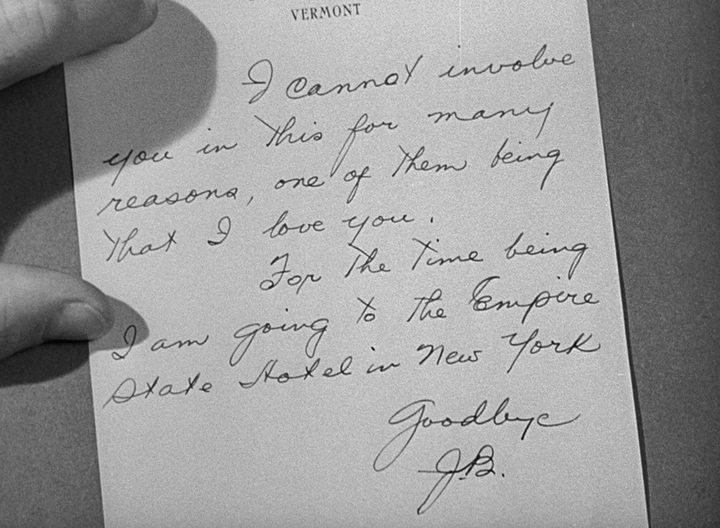 VERMONT
I cannot involve
you in this for many
reasons, one of them being
that I love you.
For the time being
I am going to the Empire
State Hotel in New York
Goodbye
J.B.